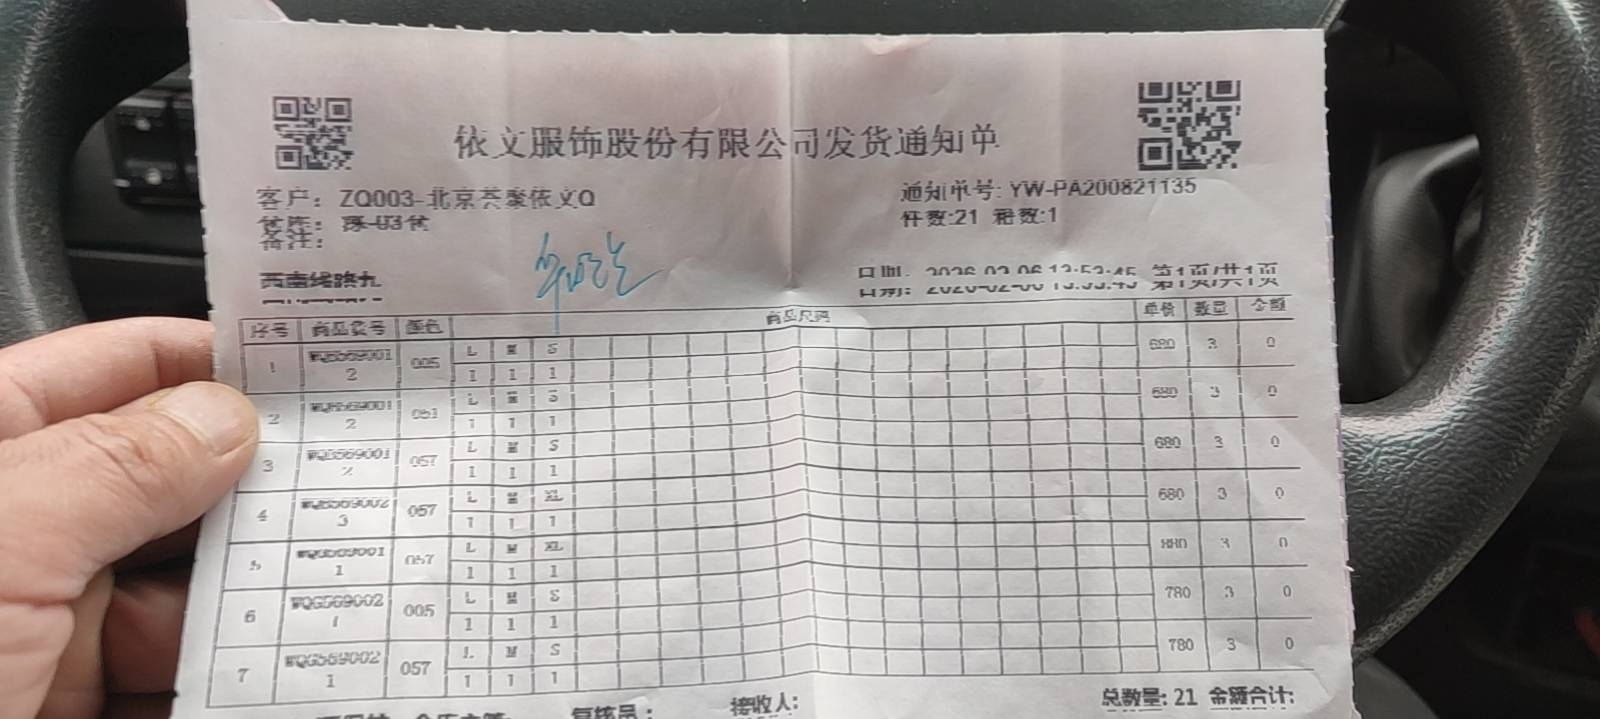 依文服饰股份有限公司发货通知单
客户: ZQ003-北京荟聚依文Q
通知单号: YW-PA200821135
件数:21 箱数:1
备注:
西南线路九
日期: 13:53:45 第1页/共1页
序号 商品货号 颜色 商品尺码 单价 数量 金额
1 005 L M S 680 3 0
2 1 1 1
2 051 L M S 680 3 0
2 1 1 1
3 057 L M S 680 3 0
2 1 1 1
4 057 L M XL 680 3 0
3 1 1 1
5 057 L M XL 880 3 0
1 1 1 1
6 WQG569002 005 L M S 780 3 0
1 1 1 1
7 WQG569002 057 L M S 780 3 0
1 1 1 1
总数量: 21 金额合计:
复核员: 接收人: